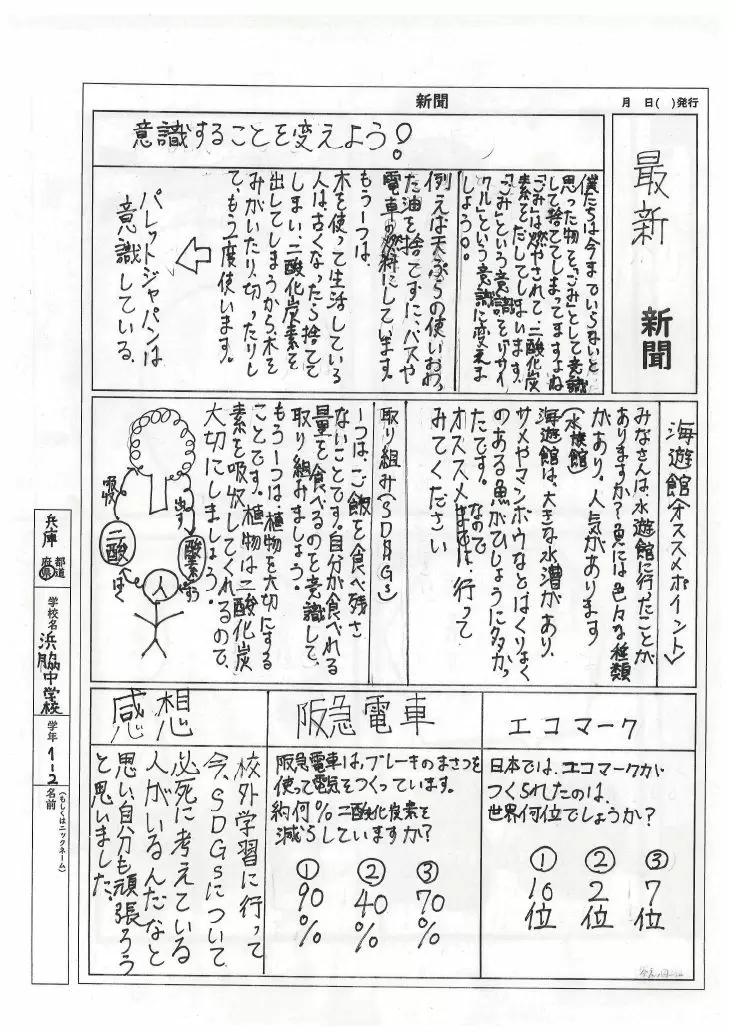 新聞
月 日( )発行
最新
新聞
意識することを変えよう!
僕たちは今までいらないと
思った物を「ごみ」として意識
して捨ててしまってますよね
「ごみ」は燃やされて二酸化炭
素をだしてしまいます。
「ごみ」という意識を「リサイ
クル」という意識に変えま
しょう!。
例えば天ぷらの使いおわっ
た油を捨てずに、バスや
電車の燃料にしています。
もう一つは、
木を使って生活している
人は、古くなったら捨てて
しまい、二酸化炭素を
出してしまうから、木を
みがいたり、切ったりし
て、もう一度使います。
パレットジャパンは
意識している。
海遊館〈オススメポイント〉
みなさんは、水遊館に行ったことが
ありますか?魚には色々な種類
があり。人気があります
(水族館)
海遊館は、大きな水漕があり、
サメやマンボウなどはくりょく
のある魚がひじょうに多かっ
たです。なので
オススメ 行って
みてください
取り組み(SDGs)
一つは、ご飯を食べ残さ
ないことです。自分が食べれる
量を食べるのを意識して、
取り組みましょう。
もう一つは、植物を大切にする
ことです。植物は二酸化炭
素を吸収してくれるので、
大切にしましょう。
吸収
出す
二酸
酸素
すう
はく
人
エコマーク
日本では、エコマークが
つくられたのは、
世界何位でしょうか?
① ② ③
10位 2位 7位
阪急電車
阪急電車は、ブレーキのまさつを
使って電気をつくっています。
約何%二酸化炭素を
減らしていますか?
① ② ③
90% 40% 70%
感想
校外学習に行って
今、SDGsについて
必死に考えている
人がいるんだなと
思い、自分も頑張ろう
と思いました。
兵庫 都道府県
学校名 浜脇中学校
学年 1-2
名前(もしくはニックネーム)